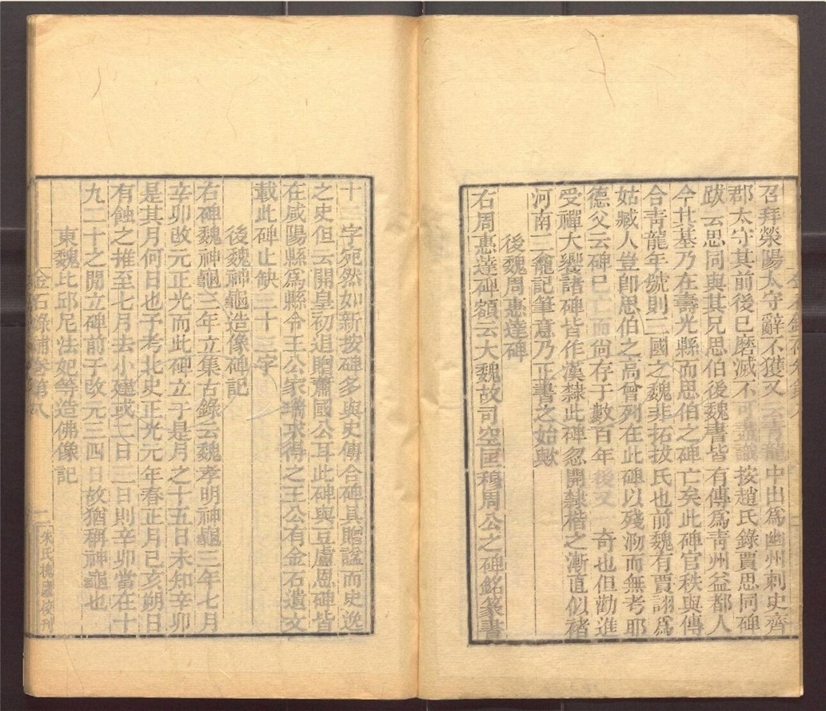 召拜滎陽太守辭不獲又云青龍中出為幽州刺史齊
郡太守其前後已磨滅不可盡識按趙氏錄賈思同碑
跋云思同與其兄思伯後魏書皆有傳為青州益都人
今其墓乃在壽光縣而思伯之碑亡矣此碑官秩與傳
合青龍年號則三國之魏非拓拔氏也前魏有賈詡為
姑臧人豈即思伯之高曾列在此碑以殘泐而無考耶
德父云碑已亡而尚存于數百年後又奇也但勸進
受禪大饗諸碑皆作漢隸此碑忽開隸楷之漸直似褚
河南三龕記筆意乃正書之始歟
後魏周惠達碑
右周惠達碑額云大魏故司空匡穆周公之碑銘篆書
十二字宛然如新按碑多與史傳合碑具贈諡而史逸
之史但云開皇初追贈蕭國公耳此碑與豆盧恩碑皆
在咸陽縣為縣令王公家瑞求得之王公有金石遺文
載此碑止缺三十三字
後魏神龜造像碑記
右碑魏神龜三年立集古錄云魏孝明神龜三年七月
辛卯改元正光而此碑立于是月之十五日未知辛卯
是其月何日也予考北史正光元年春正月己亥朔日
有蝕之推至七月去小建或二日三日則辛卯當在十
九二十之間立碑前于改元三四日故猶稱神龜也
東魏比邱尼法妃等造佛像記
金石錄補卷第八
二
朱氏槐廬校刊